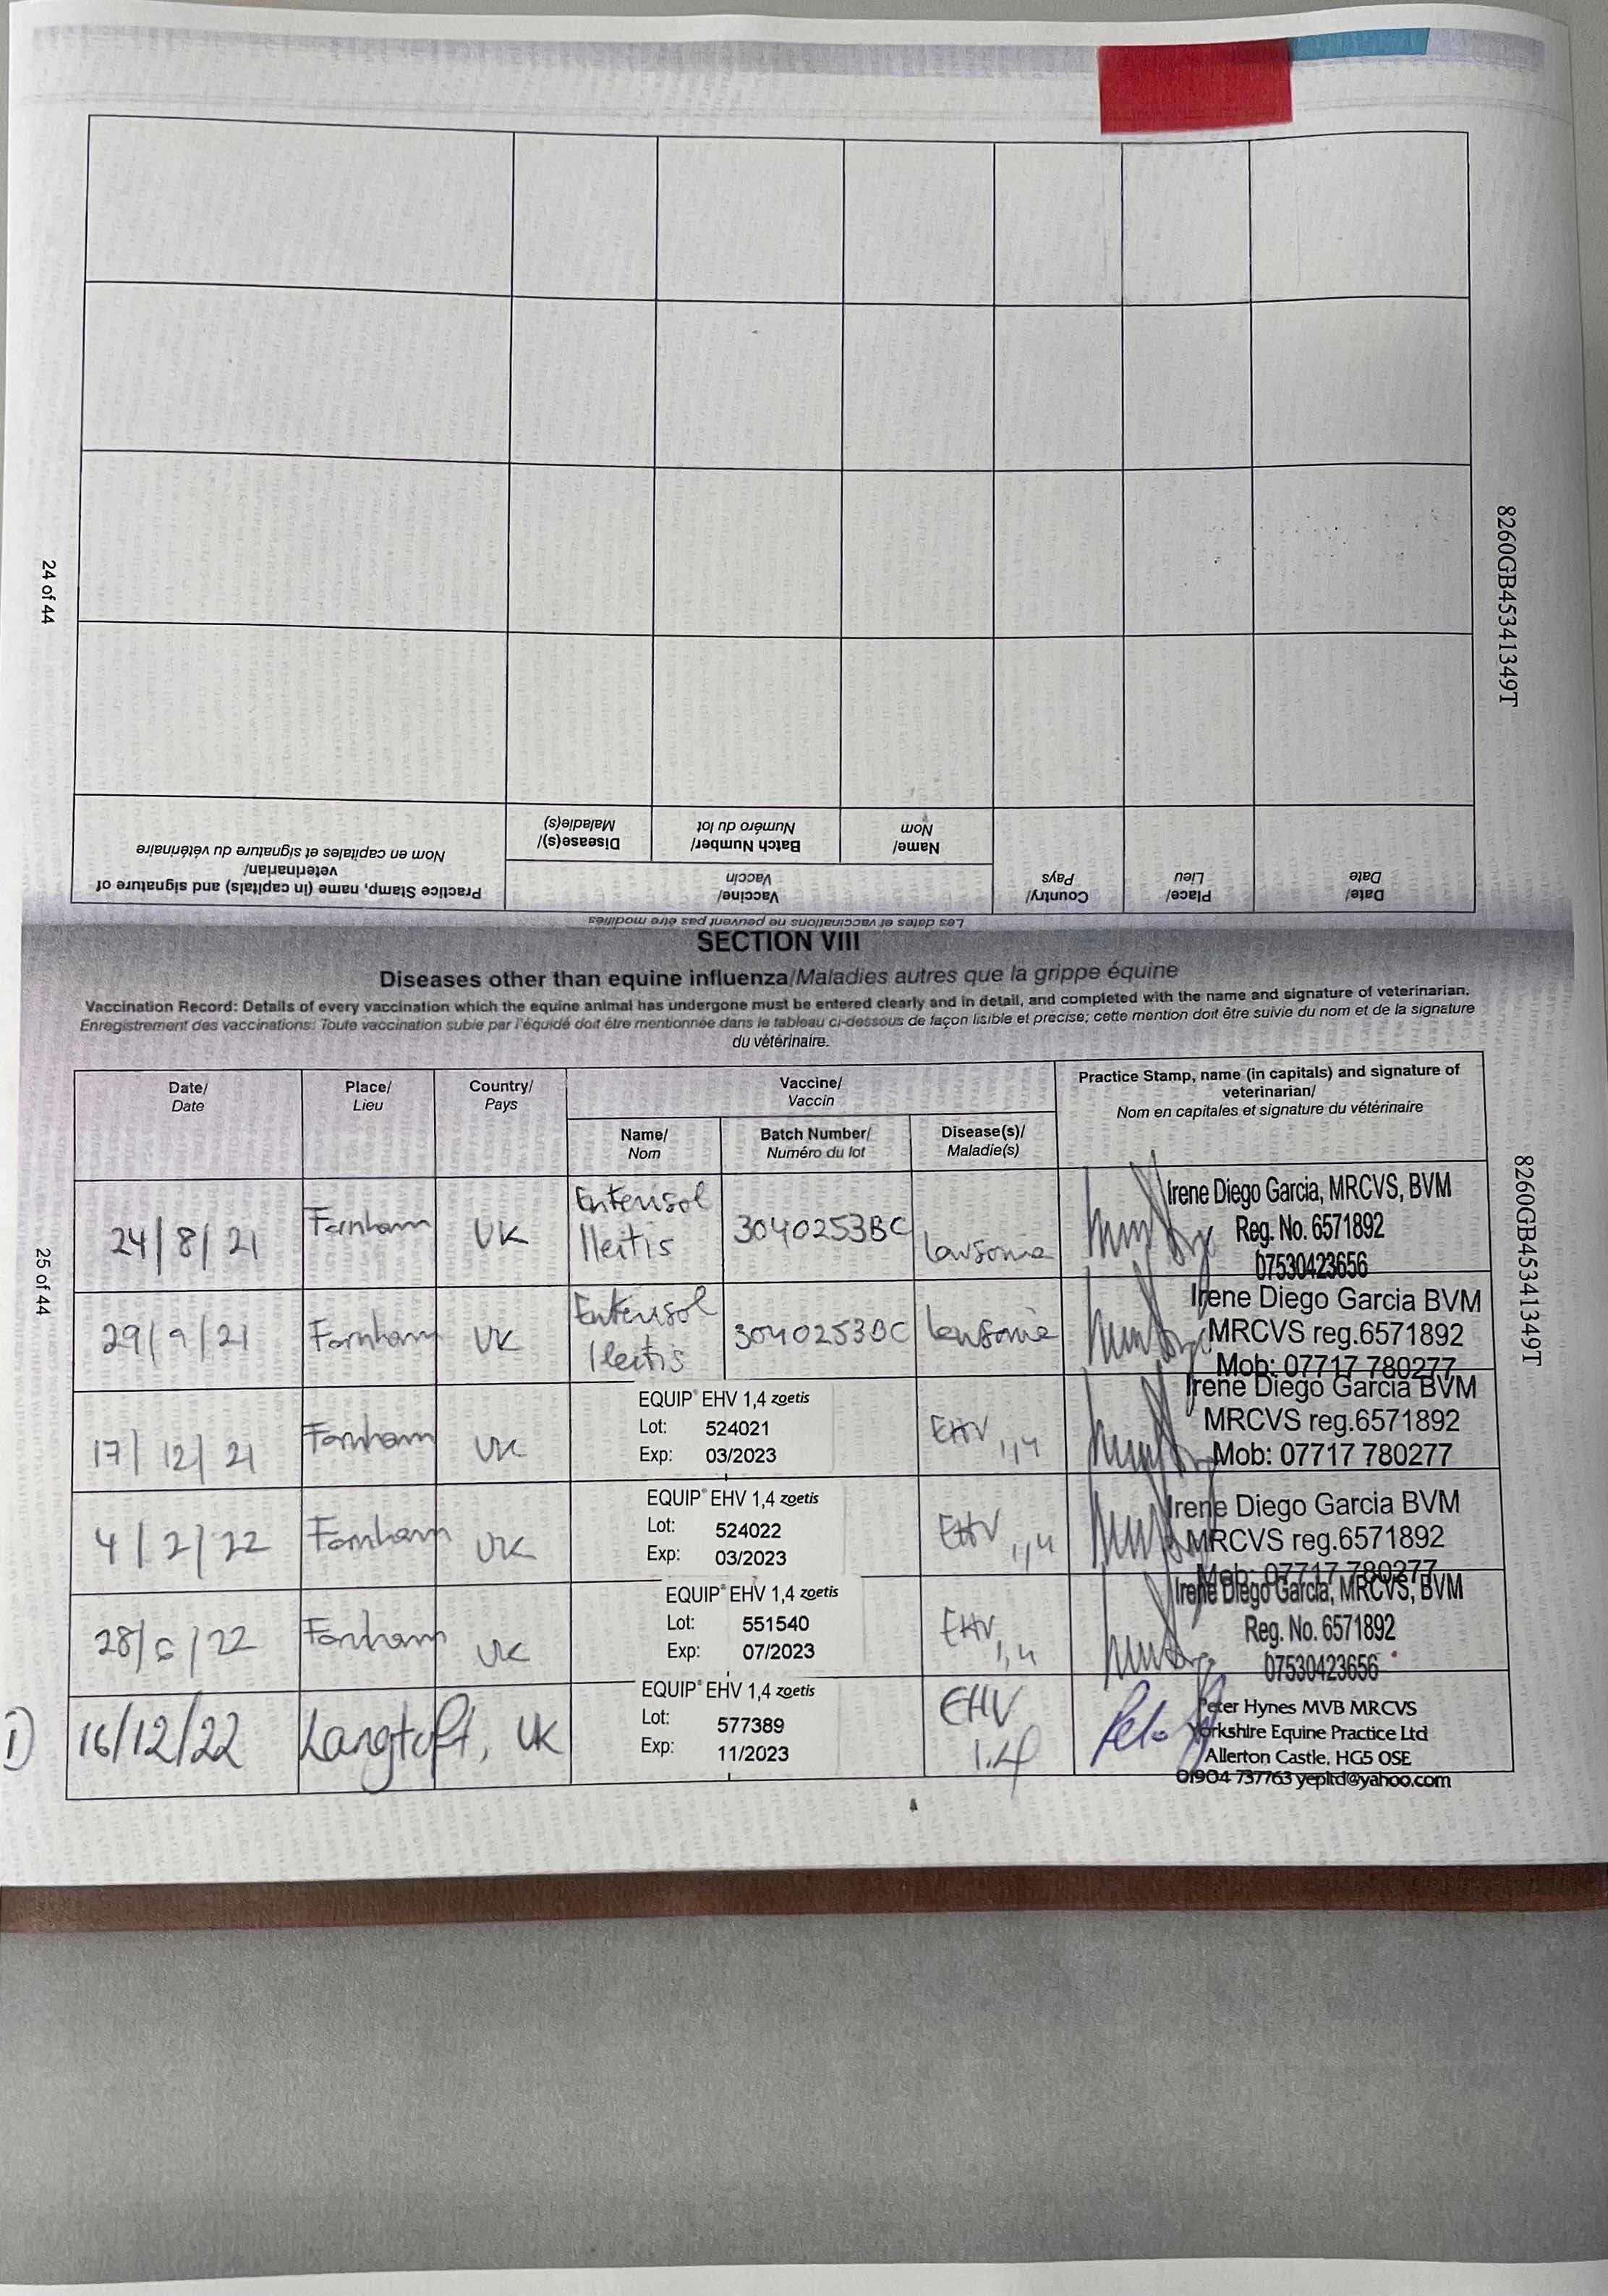 8260GB45341349T
24 of 44
Les dates et vaccinations ne peuvent pas être modifiés
Date/
Date
Place/
Lieu
Country/
Pays
Vaccine/
Vaccin
Name/
Nom
Batch Number/
Numéro du lot
Disease(s)/
Maladie(s)
Practice Stamp, name (in capitals) and signature of
veterinarian/
Nom en capitales et signature du vétérinaire
SECTION VIII
Diseases other than equine influenza/Maladies autres que la grippe équine
Vaccination Record: Details of every vaccination which the equine animal has undergone must be entered clearly and in detail, and completed with the name and signature of veterinarian.
Enregistrement des vaccinations: Toute vaccination subie par l'équidé doit être mentionnée dans le tableau ci-dessous de façon lisible et précise; cette mention doit être suivie du nom et de la signature
du vétérinaire.
8260GB45341349T
25 of 44
Date/
Date
Place/
Lieu
Country/
Pays
Vaccine/
Vaccin
Name/
Nom
Batch Number/
Numéro du lot
Disease(s)/
Maladie(s)
Practice Stamp, name (in capitals) and signature of
veterinarian/
Nom en capitales et signature du vétérinaire
24/8/21
Farnham
UK
Enterisol
Ileitis
3040253BC
lawsonia
Irene Diego Garcia, MRCVS, BVM
Reg. No. 6571892
07530423656
29/9/21
Farnham
UK
Enterisol
Ileitis
3040253BC
lawsonia
Irene Diego Garcia BVM
MRCVS reg.6571892
Mob: 07717 780277
17/12/21
Farnham
UK
EQUIP® EHV 1,4 zoetis
Lot: 524021
Exp: 03/2023
EHV 1,4
Irene Diego Garcia BVM
MRCVS reg.6571892
Mob: 07717 780277
4/2/22
Farnham
UK
EQUIP® EHV 1,4 zoetis
Lot: 524022
Exp: 03/2023
EHV 1,4
Irene Diego Garcia BVM
MRCVS reg.6571892
Mob: 07717 780277
28/6/22
Farnham
UK
EQUIP® EHV 1,4 zoetis
Lot: 551540
Exp: 07/2023
EHV 1,4
Irene Diego Garcia, MRCVS, BVM
Reg. No. 6571892
07530423656
1)
16/12/22
Langtoft, UK
EQUIP® EHV 1,4 zoetis
Lot: 577389
Exp: 11/2023
EHV
1.4
Peter Hynes MVB MRCVS
Yorkshire Equine Practice Ltd
Allerton Castle, HG5 0SE
01904 737763 yepltd@yahoo.com